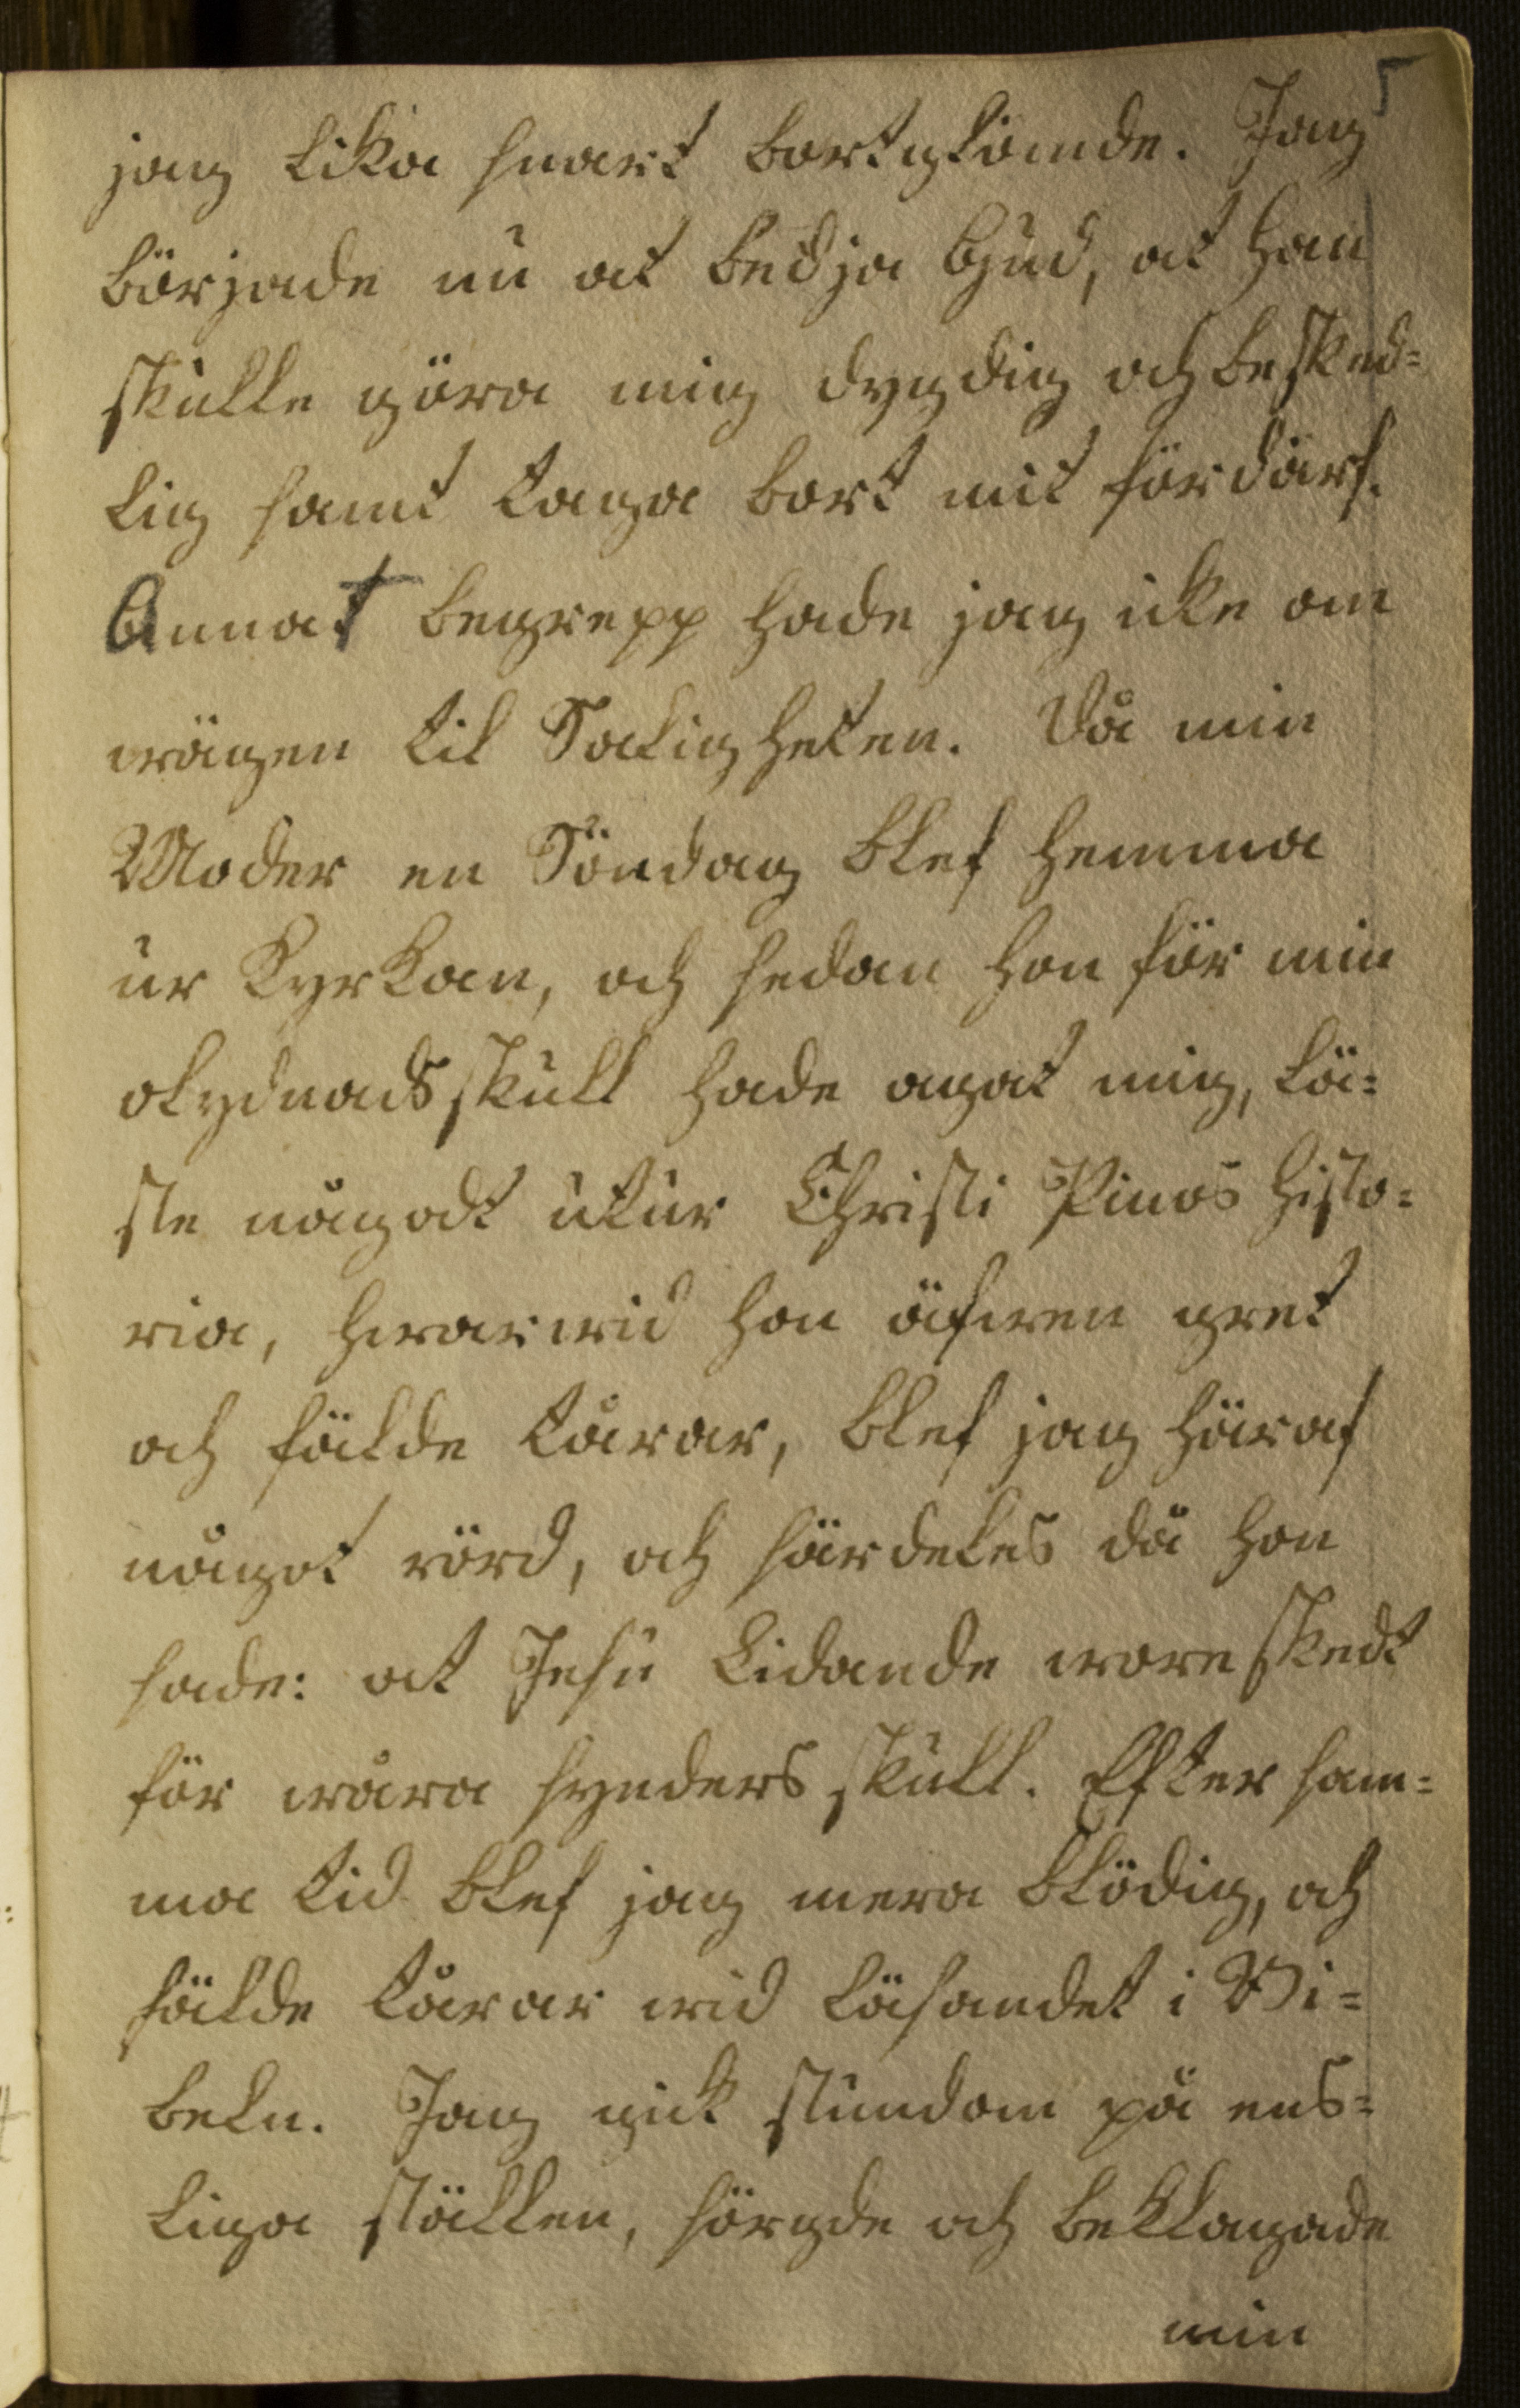 5
jag lika snart bortglömde. Jag
började nu at bedja Gud, at han
skulle göra mig dygdig och besked=
lig samt taga bort mit fördärf.
Annat begrepp hade jag icke om
wägen til Saligheten. Då min
Moder en Söndag blef hemma
ur Kyrkan, och sedan hon för min
olydnads skull hade agat mig, lä=
ste någodt utur Christi Pinos histo=
ria, hwarwid hon äfwen gret
och fälde tårar, blef jag häraf
något rörd, och särdeles då hon
sade: at Jesu Lidande wore skedt
för wåra synders skull. Efter sam=
ma tid blef jag mera blödig, och
fälde tårar wid läsandet i Bi=
beln. Jag gick stundom på ens=
liga ställen, sörgde och beklagade
min